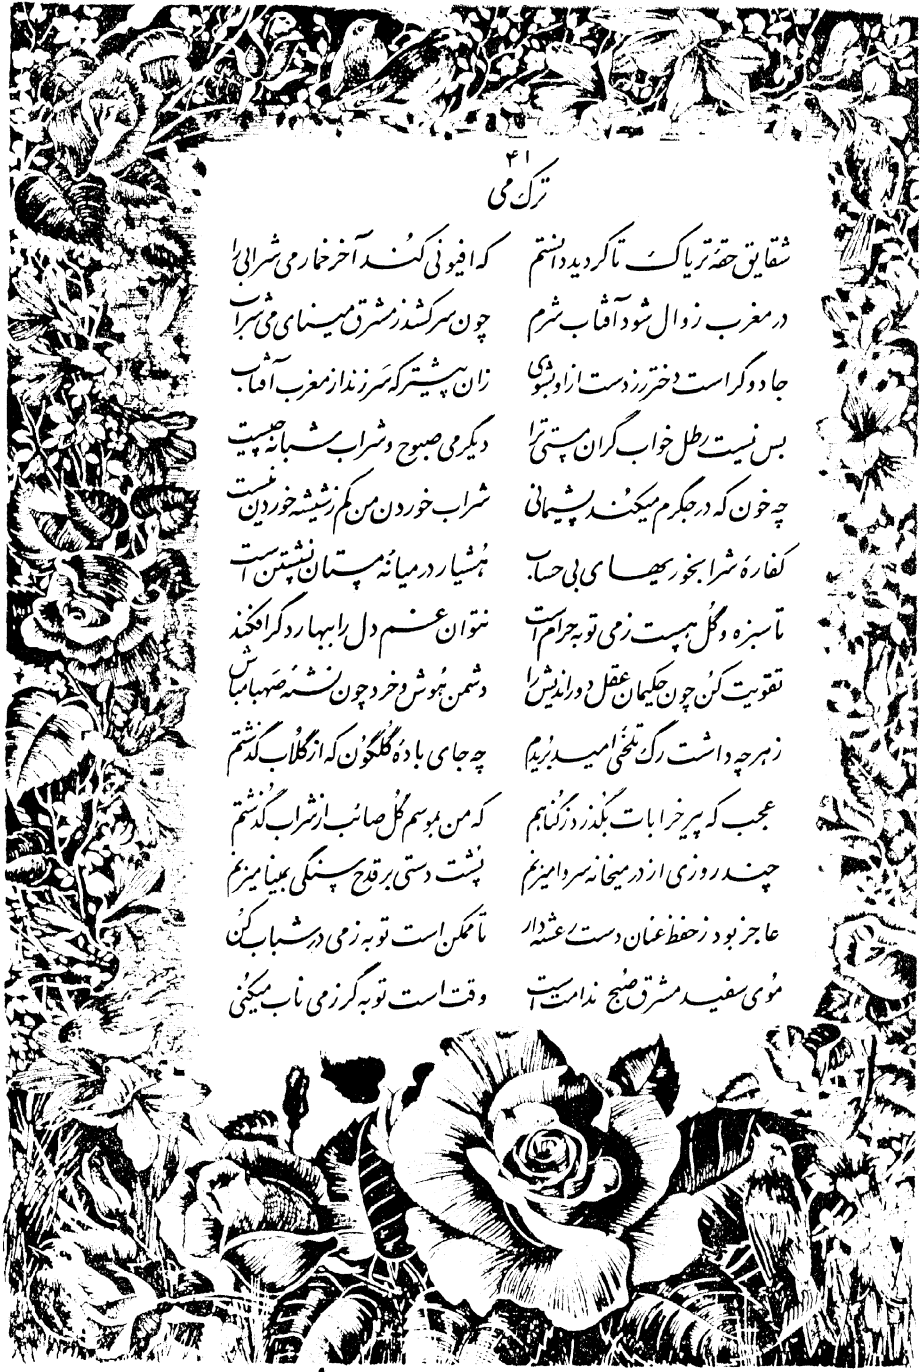 ۴۱
ترک می
شقایق حقهٔ تریاک تا گردید دانستم که افیونی کند آخر خمار می شرابی را
در مغرب زوال شود آفتاب شرم چون سر کشد ز مشرق مینای می شراب
جادوگر است دختر رز دست ازو بشوی زان پیشتر که سر زند از مغرب آفتاب
بس نیست رطل خواب گران مستی ترا دیگر می صبوح و شراب شبانه چیست
چه خون که در جگرم میکند پشیمانی شراب خوردن من کم ز شیشه خوردن نیست
کفارهٔ شرابخوریهای بی حساب هشیار در میانهٔ مستان نشستن است
تا سبزه و گل هست ز می توبه حرام است نتوان غم دل را ببهار دگر افکند
تقویت کن چون حکیمان عقل دوراندیش را دشمن هوش و خرد چون نشئه صهبا مباش
ز هر چه داشت رگ تلخی امید بریدم چه جای بادهٔ گلگون که از گلاب گذشتم
عجب که پیر خرابات بگذرد ز گناهم که من بموسم گل صائب از شراب گذشتم
چند روزی از در میخانه سر وامیزنم پشت دستی بر قدح سنگی بمینا میزنم
عاجز بود ز حفظ عنان دست رعشه دار تا ممکن است توبه ز می در شباب کن
موی سفید مشرق صبح ندامت است وقت است توبه گر ز می ناب میکنی